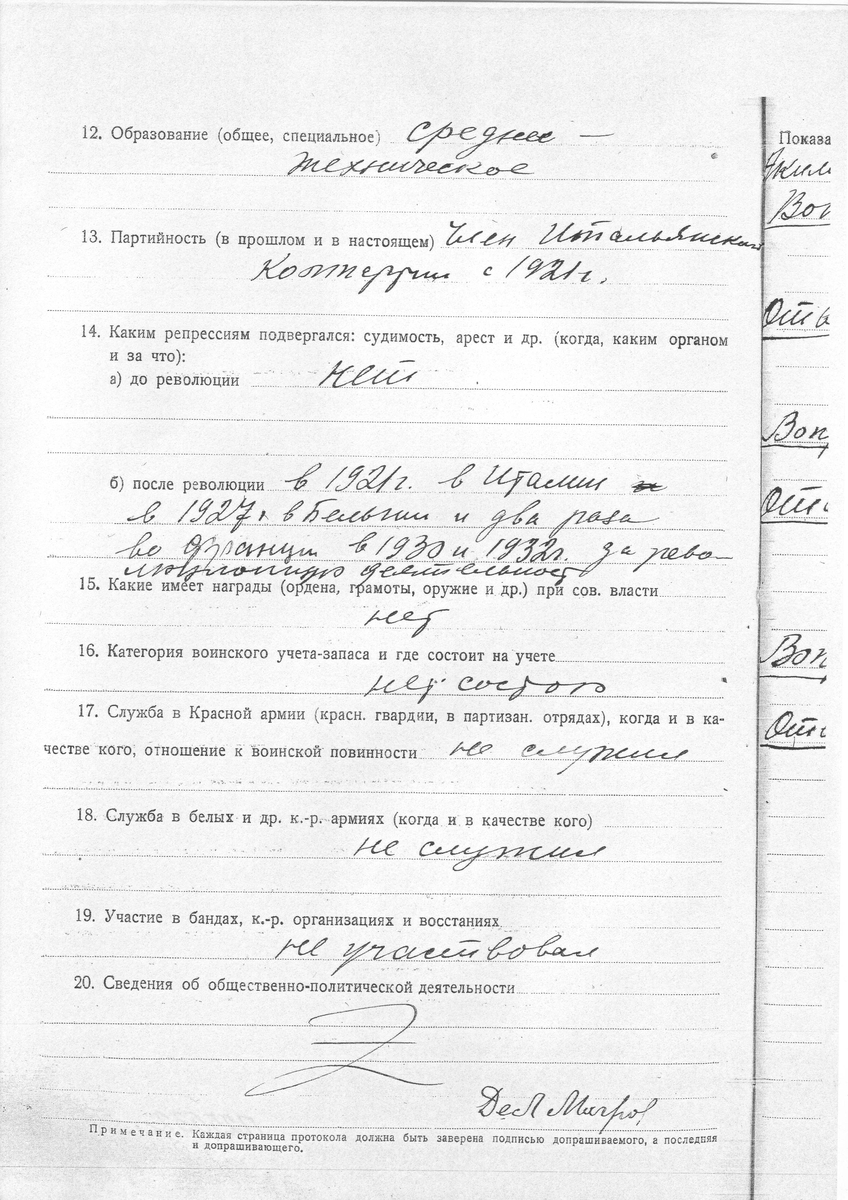 12. Образование (общее, специальное) средне —
техническое
13. Партийность (в прошлом и в настоящем) Член Итальянской
Компартии с 1921 г.
14. Каким репрессиям подвергался: судимость, арест и др. (когда, каким органом
и за что):
а) до революции нет
б) после революции в 1921 г. в Италии
в 1927 г. в Бельгии и два раза
во Франции в 1930 и 1932 г. за рево-
люционную деятельность
15. Какие имеет награды (ордена, грамоты, оружие и др.) при сов. власти
нет
16. Категория воинского учета-запаса и где состоит на учете
нет состою
17. Служба в Красной армии (красн. гвардии, в партизан. отрядах), когда и в ка-
честве кого, отношение к воинской повинности не служил
18. Служба в белых и др. к.-р. армиях (когда и в качестве кого)
не служил
19. Участие в бандах, к.-р. организациях и восстаниях
не участвовал
20. Сведения об общественно-политической деятельности
Примечание. Каждая страница протокола должна быть заверена подписью допрашиваемого, а последняя
и допрашивающего.
Показа
Воп
Отв
Воп
Отв
Воп
Отв